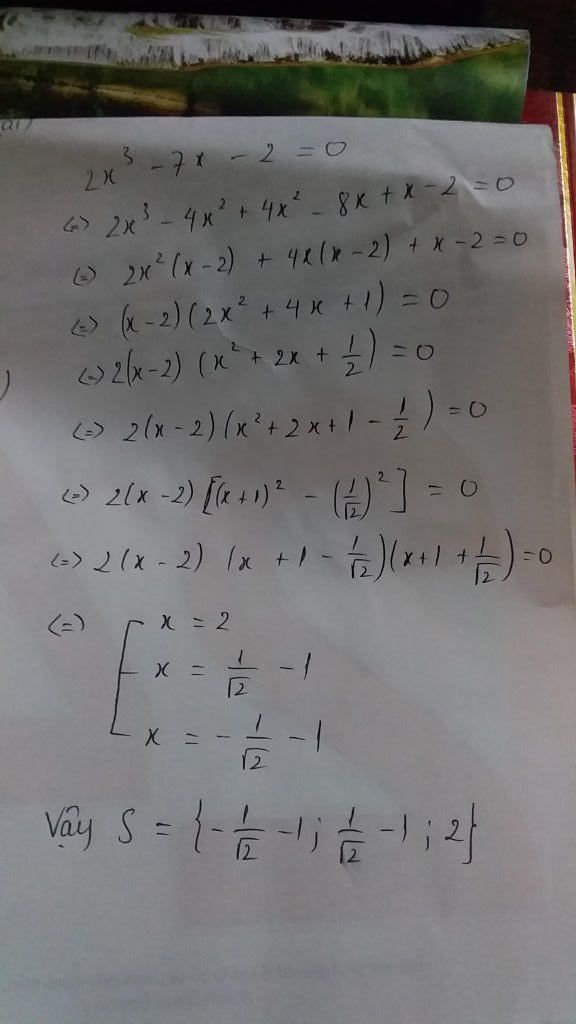 ai)
2x³ - 7x - 2 = 0
(=) 2x³ - 4x² + 4x² - 8x + x - 2 = 0
(=) 2x²(x-2) + 4x(x-2) + x - 2 = 0
(=) (x-2)(2x² + 4x + 1) = 0
(=) 2(x-2)(x² + 2x + 1/2) = 0
(=) 2(x-2)(x² + 2x + 1 - 1/2) = 0
(=) 2(x-2)[(x+1)² - (1/√2)²] = 0
(=) 2(x-2)(x + 1 - 1/√2)(x + 1 + 1/√2) = 0
(=) [ x = 2
x = 1/√2 - 1
x = -1/√2 - 1
Vậy S = {-1/√2 - 1; 1/√2 - 1; 2}